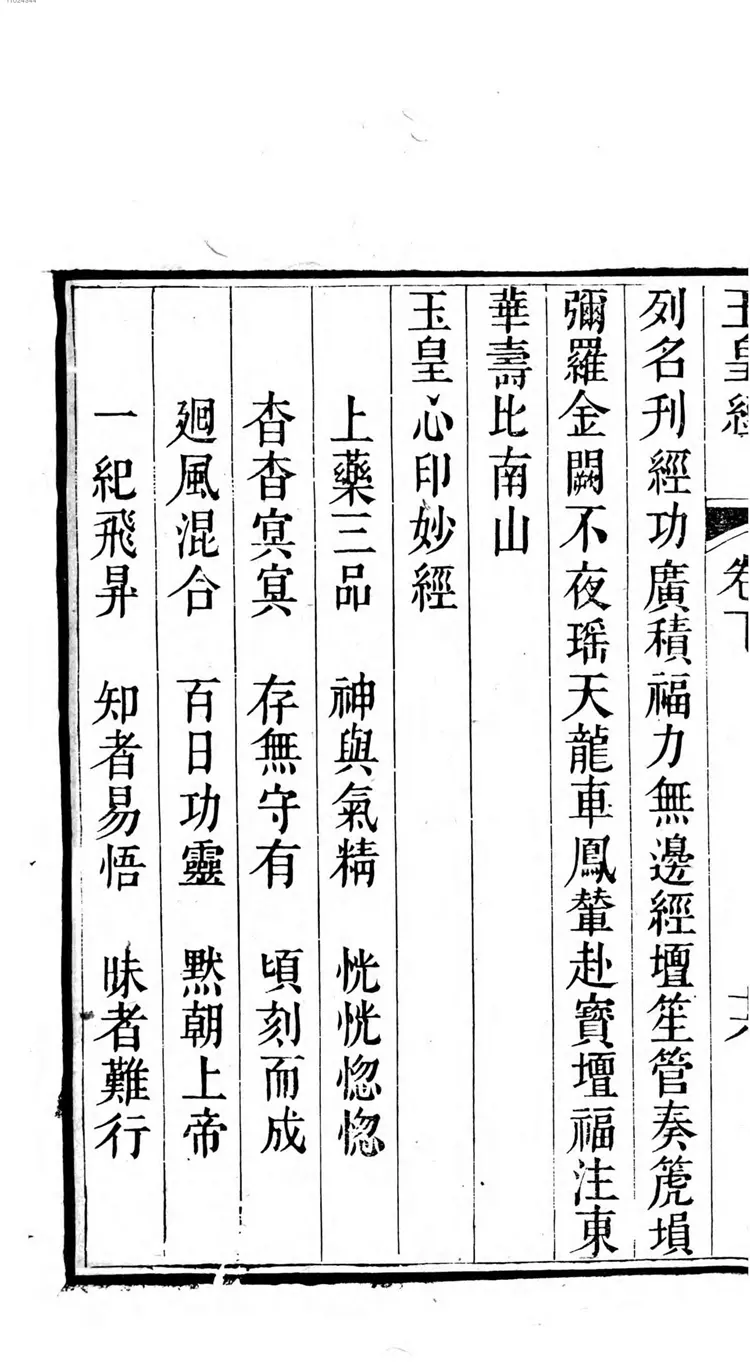 11024944
玉皇經 卷下 十六
列名刊經功廣積福力無邊經壇笙管奏箎塤
彌羅金闕不夜瑶天龍車鳳輦赴寳壇福注東
華壽比南山
玉皇心印妙經
上藥三品 神與氣精 恍恍惚惚
杳杳㝠㝠 存無守有 頃刻而成
廻風混合 百日功靈 黙朝上帝
一紀飛昇 知者易悟 昧者難行